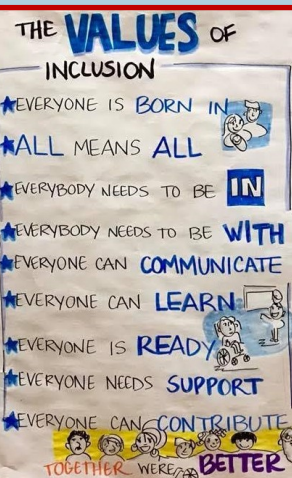 THE VALUES OF
INCLUSION
★EVERYONE IS BORN IN
★ALL MEANS ALL
★EVERYBODY NEEDS TO BE IN
★EVERYBODY NEEDS TO BE WITH
★EVERYONE CAN COMMUNICATE
★EVERYONE CAN LEARN
★EVERYONE IS READY
★EVERYONE NEEDS SUPPORT
★EVERYONE CAN CONTRIBUTE
TOGETHER WERE BETTER